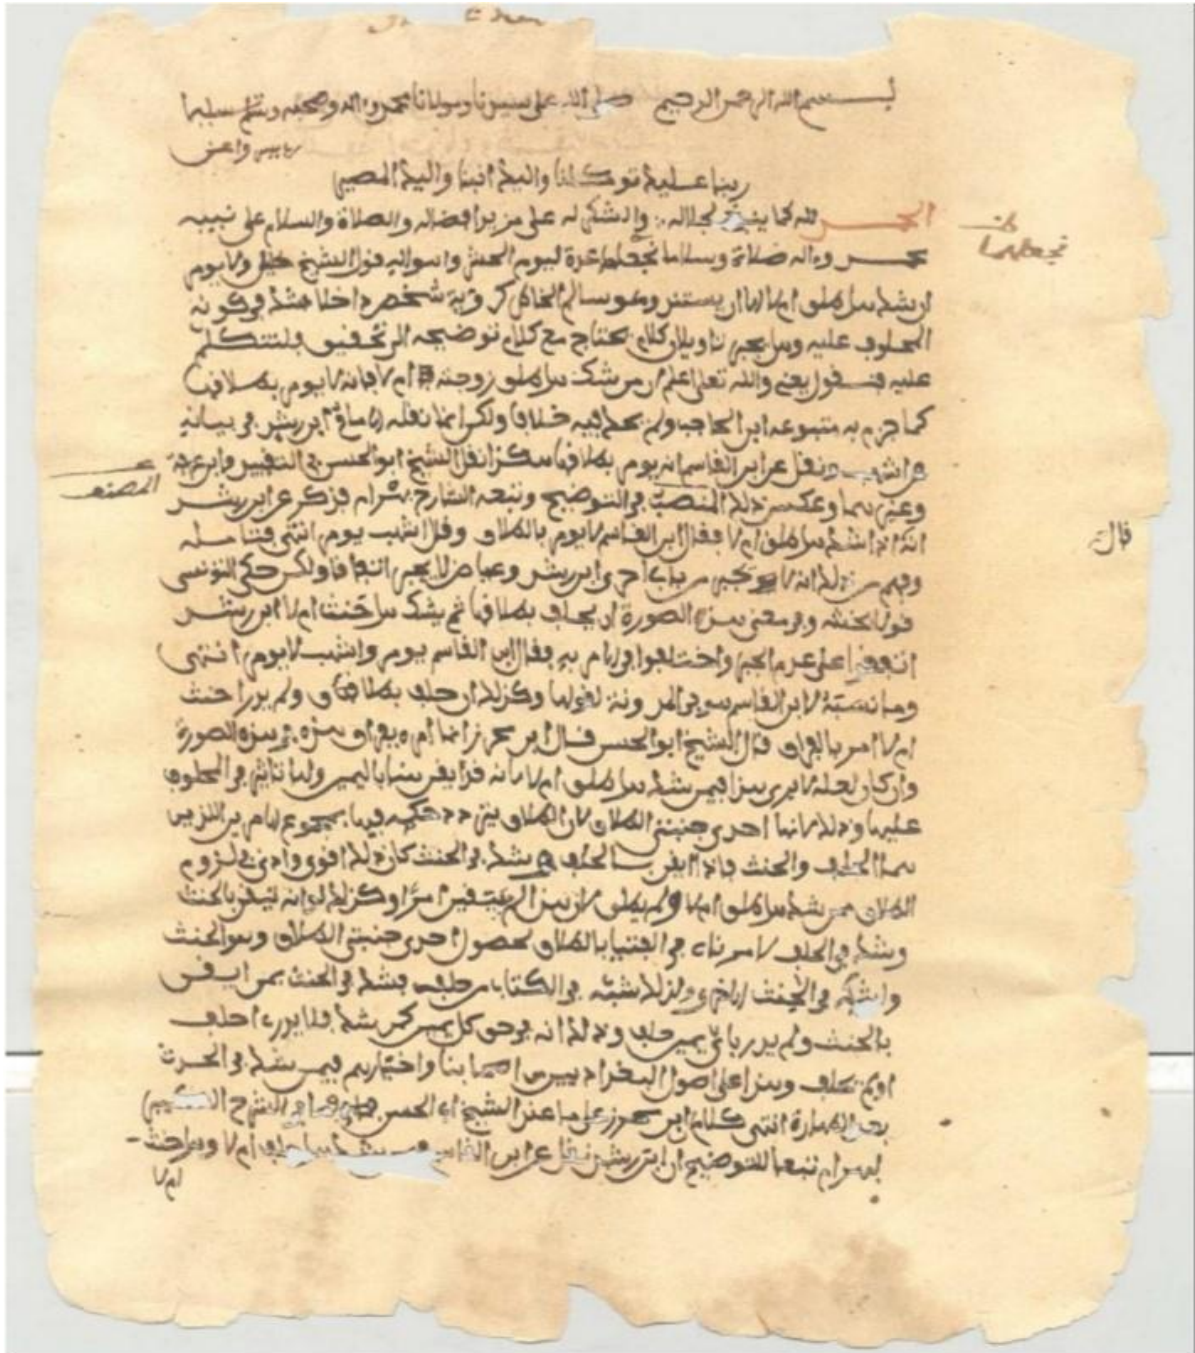 بسم الله الرحمن الرحيم صلى الله على سيدنا ومولانا محمد واله وصحبه وسلم تسليما
رب يسر واعن
ربنا عليك توكلنا واليك انبنا واليك المصير
الحمد لله كما ينبغي لجلاله والشكر له على مزيد افضاله والصلاة والسلام على نبيه
محمد وءاله صلاة وسلاما نجعلها عدة ليوم الحشر واهواله قول الشيخ خليل ولا يومر
ان شك هل طلق ام لا الا ان يستند وهو سالم الخاطر كرؤية شخص داخلا شك في كونه
المحلوف عليه وهل يجبر تاويلان كلام يحتاج مع كلام توضيحه الى تحقيق فلنتكلم
عليه فنقول يعني والله تعلى اعلم ان من شك هل طلق زوجته ام لا فانه لا يومر بطلاقها
كما جزم به متبوعه ابن الحاجب ولم يحك فيه خلافا ولكن انما نقله الامام ابن رشد في بيانه
عن اشهب ونقل عن ابن القاسم انه يومر بطلاقها هكذا نقل الشيخ ابو الحسن في التقييد وابن عرفة
وغيرهما وعكس ذلك المنصب في التوضيح وتبعه الشارح بهرام فذكر عن ابن رشد
انه اذا شك هل طلق ام لا فقال ابن القاسم لا يومر بالطلاق وقال اشهب يومر انتهى فتامله
وفهم من ذلك انه لا يجبر من باب احرى ابن رشد وعياض لا يجبر اتفاقا ولكن حكى التونسي
قولا بحنثه وفي معنى هذه الصورة ان يحلف بطلاقها ثم يشك هل حنث ام لا ابن رشد
اتفقوا على عدم الجبر واختلفوا في الامر به فقال ابن القاسم يومر واشهب لا يومر انتهى
وما نسبه لابن القاسم هو في المدونة لقولها وكذلك ان حلف بطلاق ولم يدر احنث
ام لا امر بالفراق قال الشيخ ابو الحسن قال ابن محرز انما امره بفراق هذه في هذه الصورة
وان كان لعله لا يرى هذا فيمن شك هل طلق ام لا لانه قد ايقن هنا باليمين ولها تاثير في المحلوف
عليها وذلك لانها احدى جنبتي الطلاق لان الطلاق يتردد حكمه فيها بمجموع الامرين اللذين
هما الحلف والحنث فاذا ايقن بالحلف وشك في الحنث كان ذلك اقوى وادنى في لزوم
الطلاق ممن شك هل طلق ام لا ولم يطلق لان هذا لم يتيقن امرا وكذلك لو انه تيقن بالحنث
وشك في الحلف لامرناه في الفتيا بالطلاق لحصول احدى جنبتي الطلاق وهو الحنث
وشكه في الجنبة الاخرى ولذلك شبه في الكتاب من حلف فشك في الحنث بمن ايقن
بالحنث ولم يدر باي يمين حلف وذلك انه في حق كل يمين كمن شك فلا يدري احلف
او لم يحلف وهذا على اصول البغداديين من اصحابنا واختيارهم فيمن شك في الحدث
بعد الطهارة انتهى كلام ابن محرز على ما عند الشيخ ابي الحسن وفي الشرح الكبير
لبهرام تبعا للتوضيح ان ابن رشد نقل عن ابن القاسم فيمن شك هل حلف ام لا وهل حنث
ام لا
نجعلهما
المصنف
قال